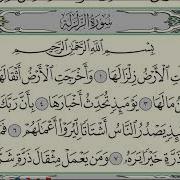 سُورَةُ الزَّلْزَلَةِ
بِسْمِ اللَّهِ الرَّحْمَٰنِ الرَّحِيمِ
تِ الْأَرْضُ زِلْزَالَهَا ١ وَأَخْرَجَتِ الْأَرْضُ أَثْقَالَهَا
مَا لَهَا ٣ يَوْمَئِذٍ تُحَدِّثُ أَخْبَارَهَا ٤ بِأَنَّ رَبَّكَ
ذٍ يَصْدُرُ النَّاسُ أَشْتَاتًا لِّيُرَوْا أَعْمَٰلَهُمْ ٦
ذَرَّةٍ خَيْرًا يَرَهُ ٧ وَمَن يَعْمَلْ مِثْقَالَ ذَرَّةٍ شَرًّا